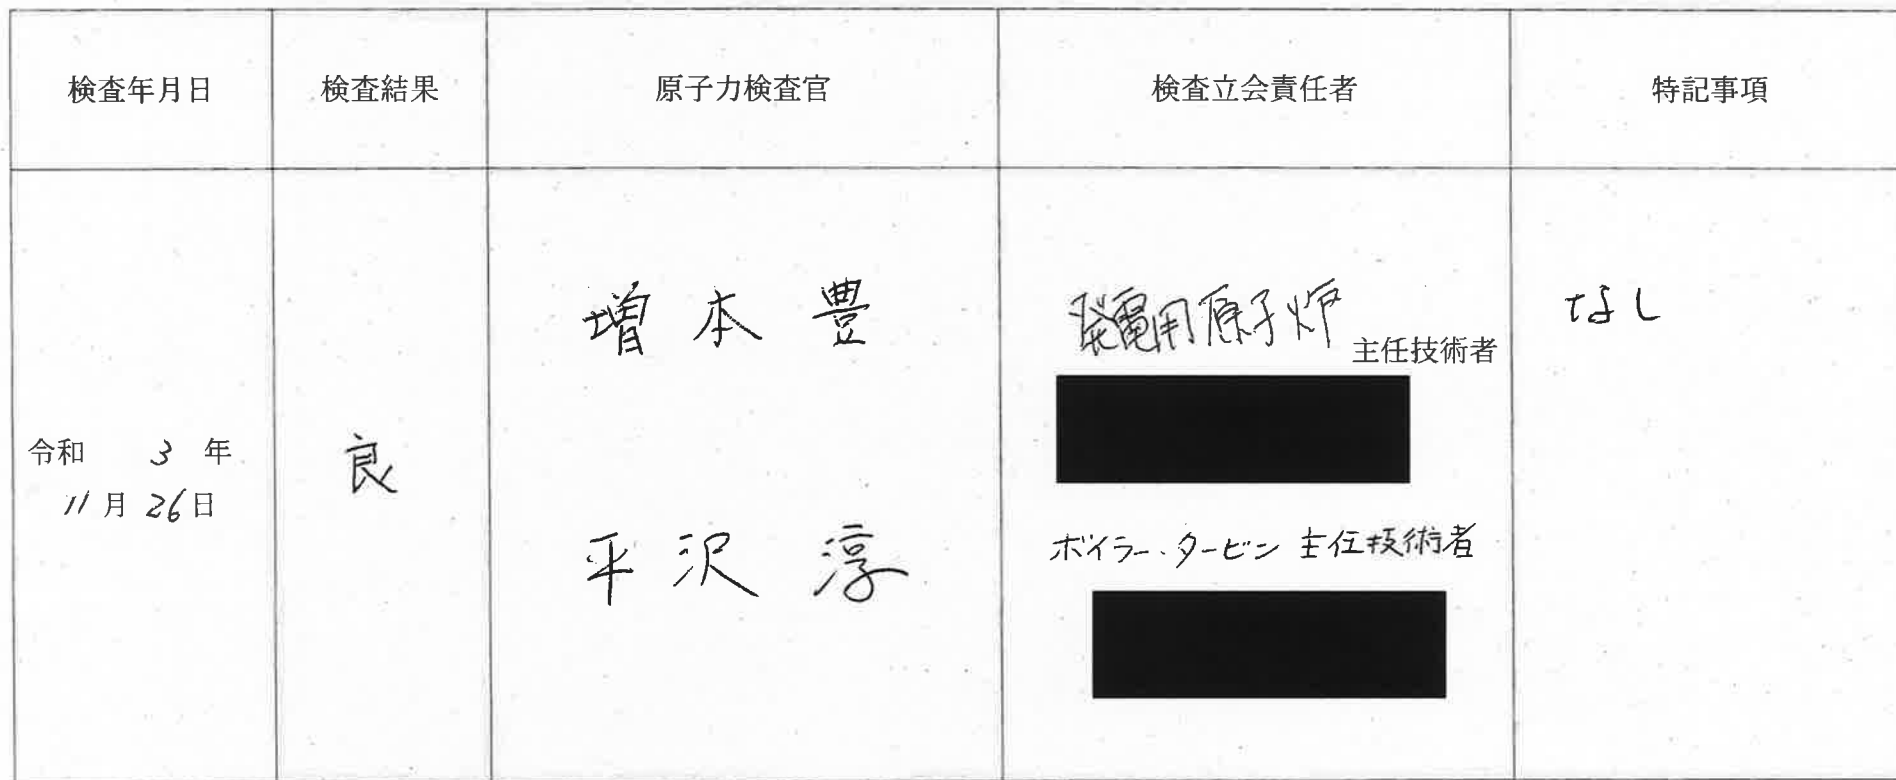 検査年月日 検査結果 原子力検査官 検査立会責任者 特記事項
令和 3 年
11月26日
良
増本 豊
平沢 淳
発電用原子炉 主任技術者
ボイラー・タービン 主任技術者
なし